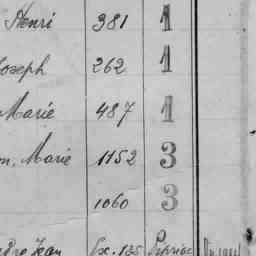 Henri 381 1
Joseph 262 1
Marie 487 1
Marie 1152 3
1060 3
Jean Ex. 125